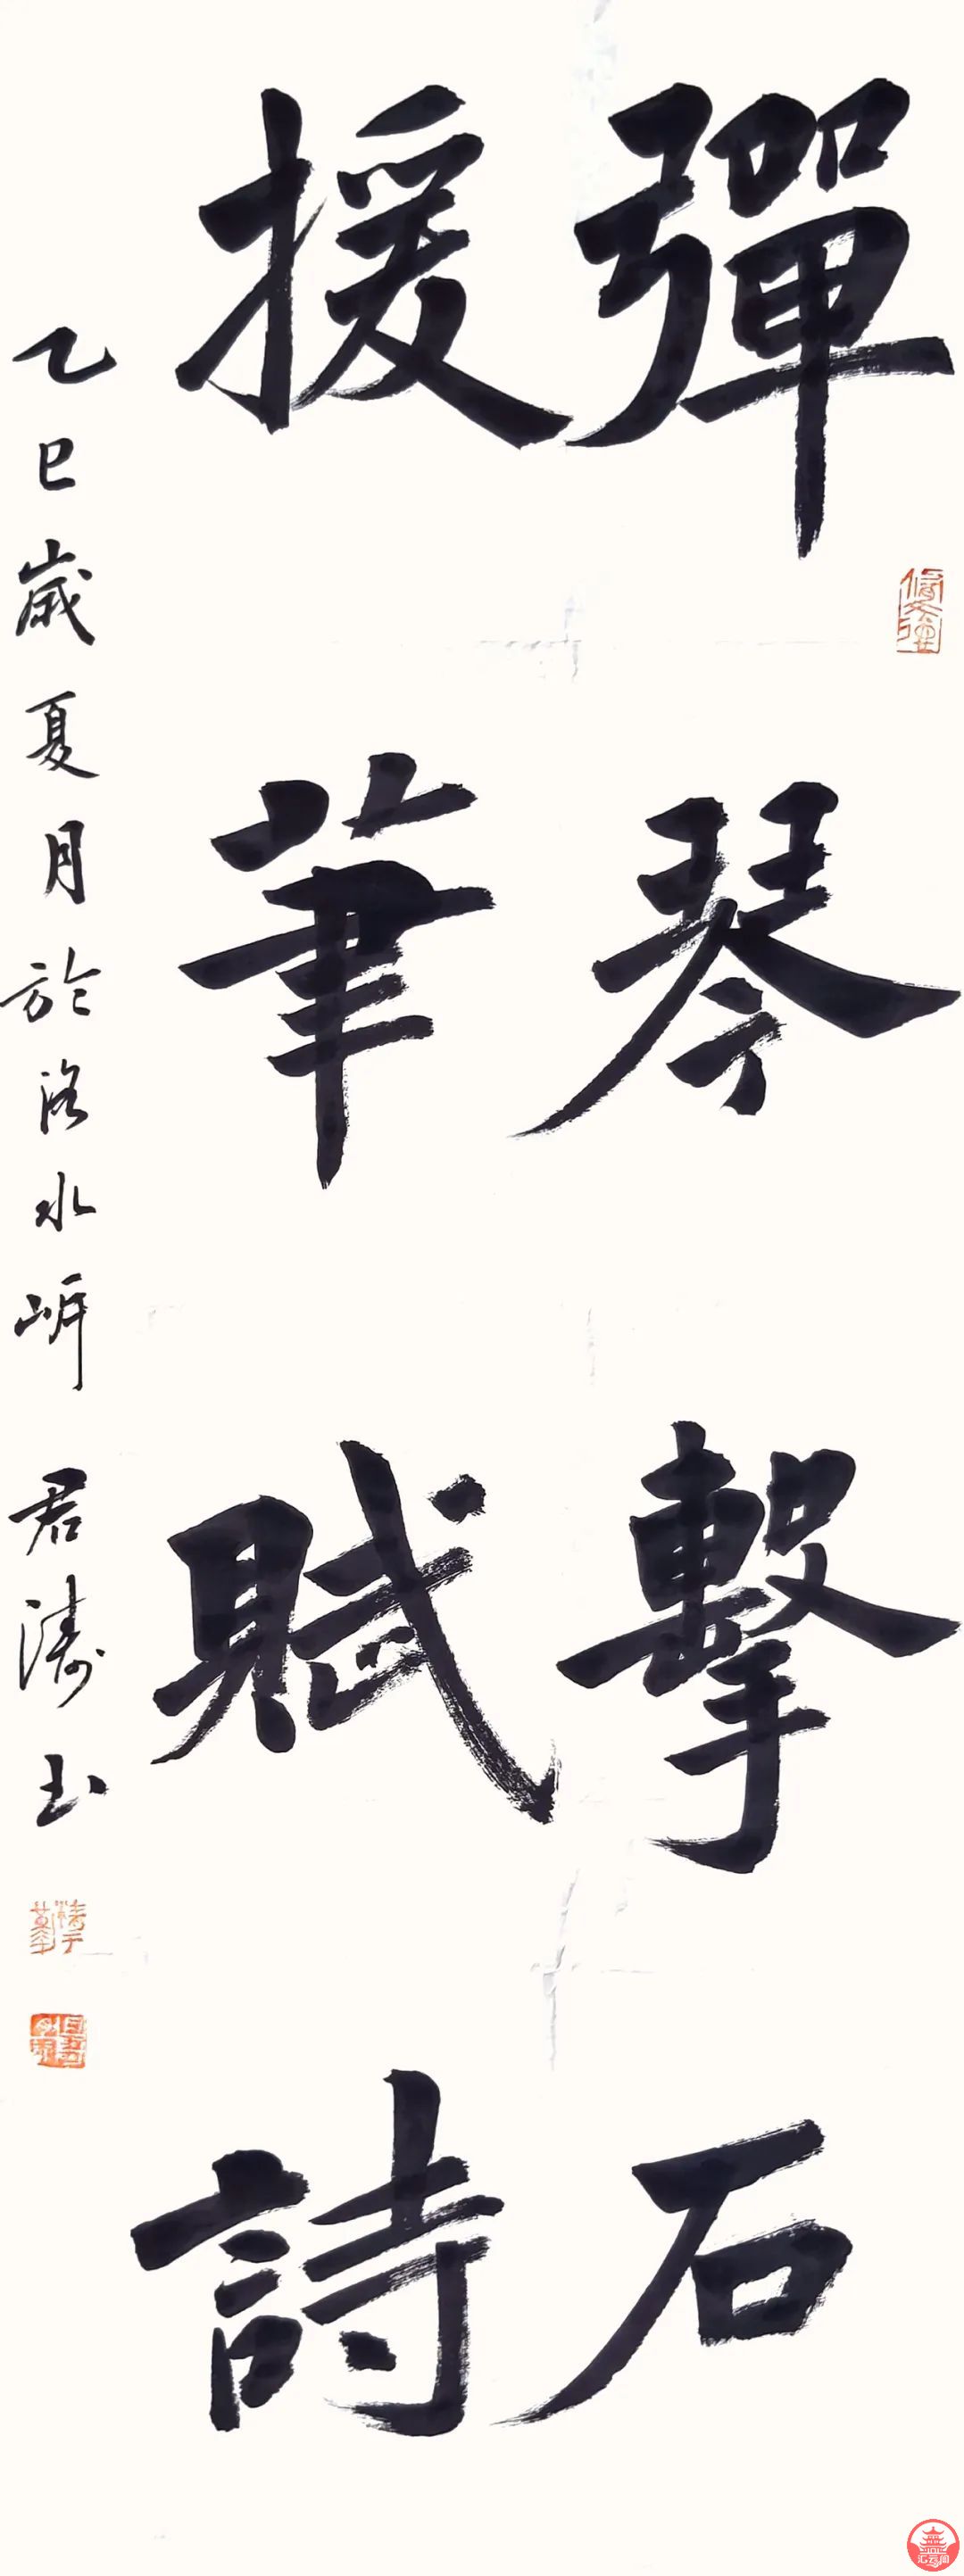 彈琴擊石
援筆賦詩
乙巳歲夏月於洛水岍君濤書
汇云阁